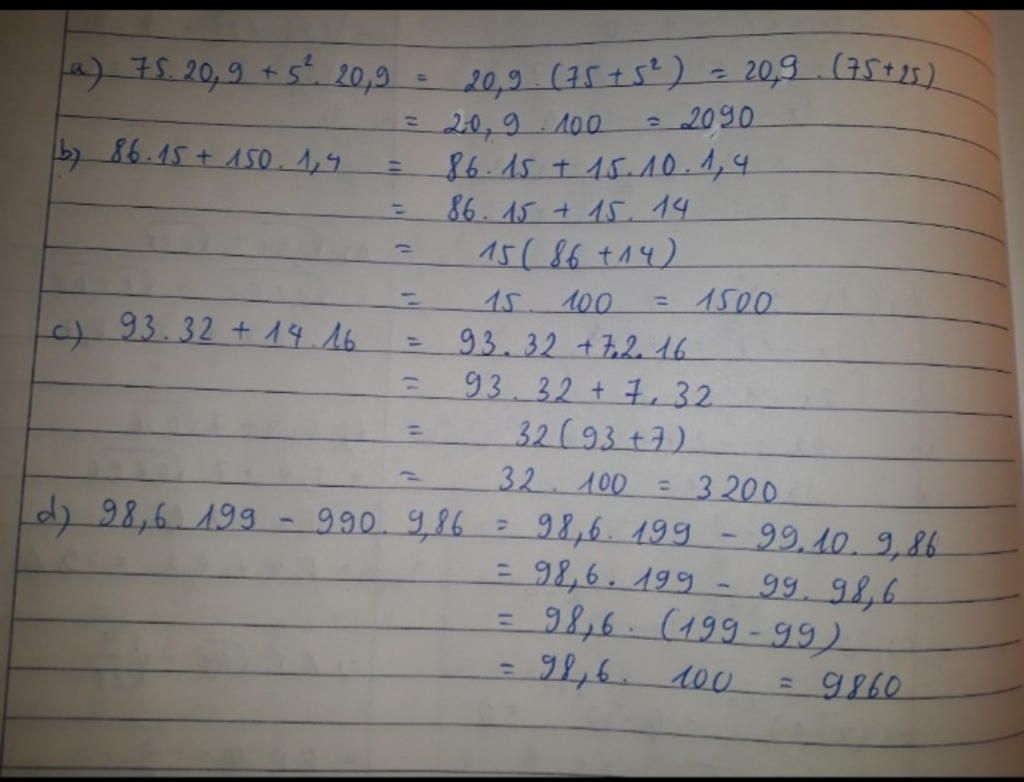 a) 75.20,9 + 5². 20,9 = 20,9 . (75 + 5²) = 20,9 . (75+25)
= 20,9 . 100 = 2090
b) 86.15 + 150 . 1,4 = 86.15 + 15.10.1,4
= 86.15 + 15.14
= 15(86 + 14)
= 15. 100 = 1500
c) 93.32 + 14.16 = 93.32 + 7.2.16
= 93.32 + 7.32
= 32(93+7)
= 32. 100 = 3200
d) 98,6.199 - 990. 9,86 = 98,6.199 - 99.10. 9,86
= 98,6.199 - 99. 98,6
= 98,6. (199-99)
= 98,6. 100 = 9860